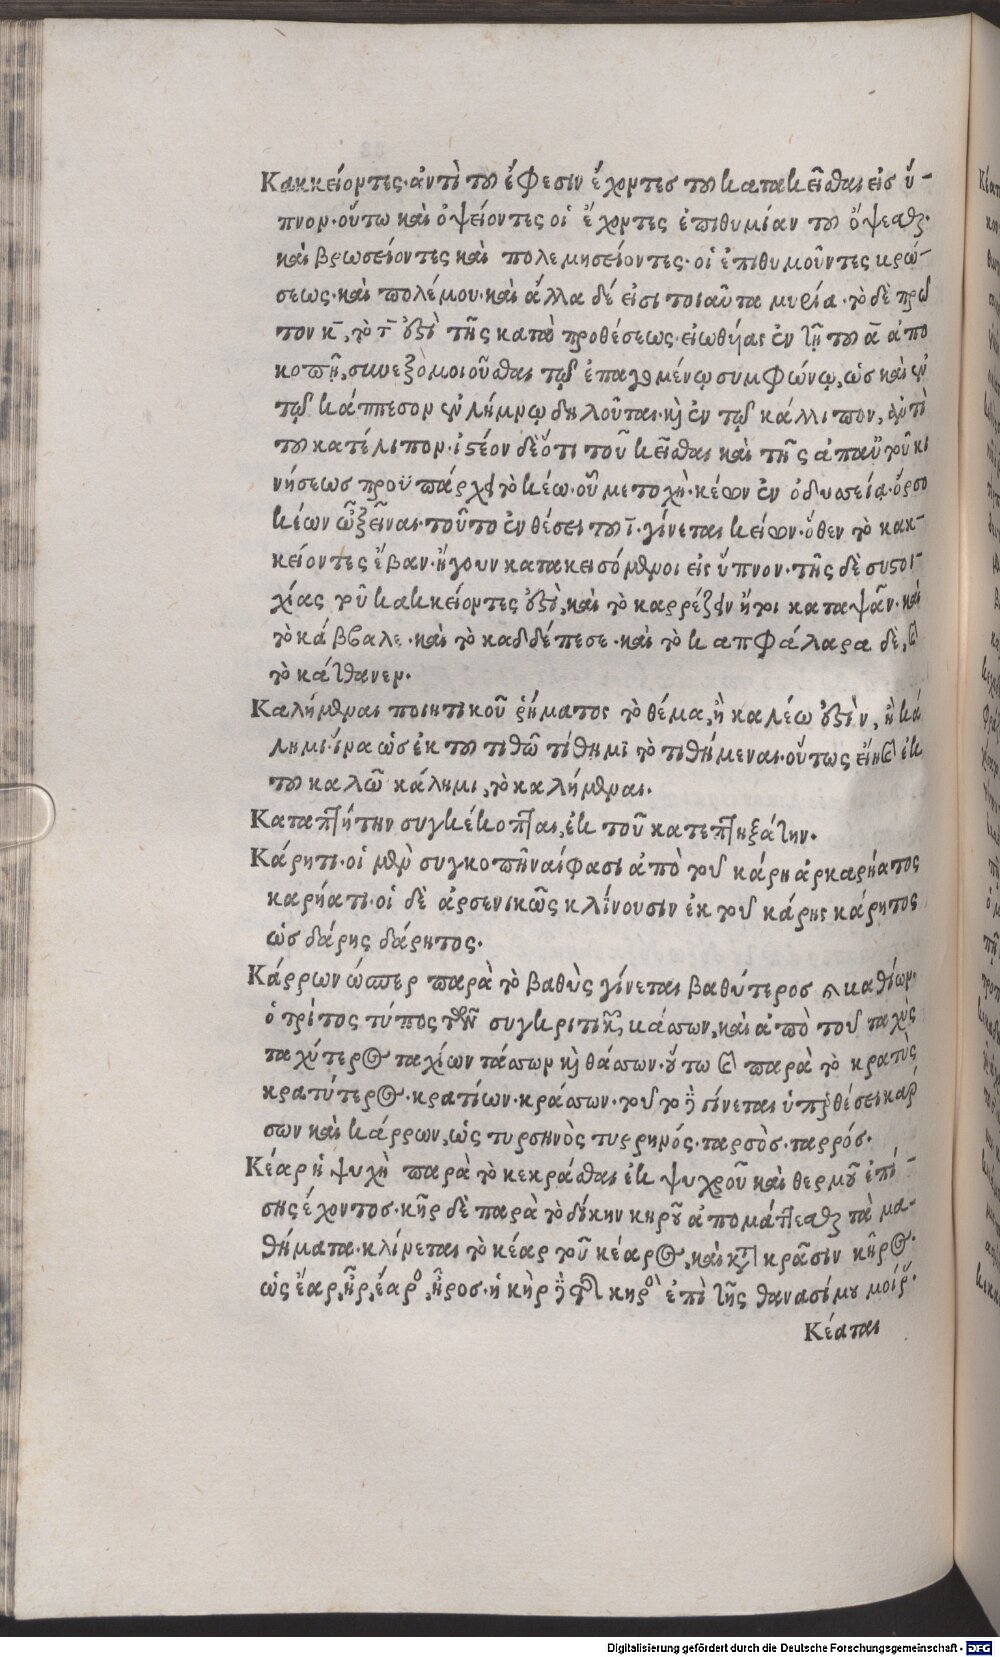 Κακκείοντες· ἀντὶ τοῦ ἔφεσιν ἔχοντες τοῦ κατακεῖσθαι εἰς ὕ-
πνον· οὕτω καὶ ὀψείοντες οἱ ἔχοντες ἐπιθυμίαν τοῦ ὄψεσθαι·
καὶ βρωσείοντες καὶ πολεμησείοντες· οἱ ἐπιθυμοῦντες βρώ-
σεως· καὶ πολέμου· καὶ ἄλλα δέ εἰσι τοιαῦτα μυρία· τὸ δὲ πρῶ
τον κ̄, τὸ τ̄ ἐστὶ τῆς κατὰ προθέσεως· εἰωθυίας ἐν τῇ τοῦ ᾱ ἀπο
κοπῇ, συνεξομοιοῦσθαι τῷ ἐπαγομένῳ συμφώνῳ, ὡς καὶ ἐν
τῷ κάππεσον ἐν λήμνῳ δηλοῦται· καὶ ἐν τῷ κάλλιπον, ἀντὶ
τοῦ κατέλιπον· ἰστέον δὲ ὅτι τοῦ κεῖσθαι καὶ τῆς ἁπλῶς κι
νήσεως προϋπάρχει τὸ κέω· οὗ μετοχὴ· κέων ἐν ὀδυσσείᾳ· ὄρσο
κέων ὦ ξεῖνε· τοῦτο ἐν θέσει τοῦ ῑ· γίνεται κείων· ὅθεν τὸ κακ-
κείοντες ἔβαν· ἤγουν κατακεισόμενοι εἰς ὕπνον· τῆς δὲ συστοι-
χίας τοῦ κακκείοντες ἐστὶ, καὶ τὸ καρρέζειν ἤτοι καταψᾶν· καὶ
τὸ κάββαλε· καὶ τὸ καδδέπεσε· καὶ τὸ καπφάλαρα δὲ, καὶ
τὸ κάτθανεν·
Καλήμεναι ποιητικοῦ ῥήματος τὸ θέμα, ἢ καλέω ἐστὶν, ἢ κά
λημι· ἵνα ὡς ἐκ τοῦ τιθῶ τίθημι τὸ τιθήμεναι· οὕτως εἴη καὶ ἐκ
τοῦ καλῶ κάλημι, τὸ καλήμεναι·
Καταπτήτην συγκέκοπται, ἐκ τοῦ κατεπτηξάτην·
Κάρητι· οἱ μὲν συγκοπῆναί φασι ἀπὸ τοῦ κάρηαρ καρήατος
καρήατι· οἱ δὲ ἀρσενικῶς κλίνουσιν ἐκ τοῦ κάρης κάρητος
ὡς δάρης δάρητος·
Κάρρων ὥσπερ παρὰ τὸ βαθὺς γίνεται βαθύτερος καθίων·
ὁ τρίτος τύπος τῶν συγκριτικῶν, κάσσων, καὶ ἀπὸ τοῦ ταχὺς
ταχύτερος ταχίων τάσσων καὶ θάσσων· οὕτω καὶ παρὰ τὸ κρατὺς
κρατύτερος· κρατίων· κράσσων· τοῦτο γίνεται ὑπερθέσει κάρ
σων καὶ κάρρων, ὡς τυρσηνὸς τυρρηνός· ταρσὸς· ταρρός·
Κέαρ ἡ ψυχὴ παρὰ τὸ κεκράσθαι ἐκ ψυχροῦ καὶ θερμοῦ ἐπί-
σης ἔχοντος· κῆρ δὲ παρὰ τὸ δίκην κηροῦ ἀπομάττεσθαι τὰ μα-
θήματα· κλίνεται τὸ κέαρ τοῦ κέαρος, καὶ κατὰ κρᾶσιν κῆρος·
ὡς ἔαρ, ἦρ, ἔαρος, ἦρος· ἡ κὴρ κηρὸς ἐπὶ τῆς θανασίμου μοίρας·
Κέαται
Digitalisierung gefördert durch die Deutsche Forschungsgemeinschaft · DFG